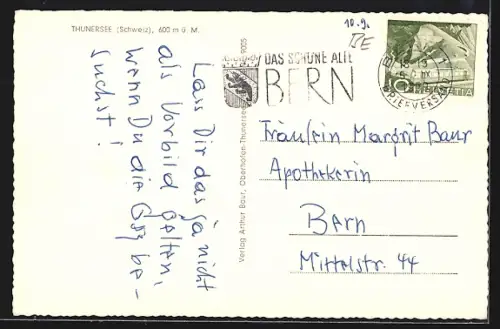 THUNERSEE (Schweiz), 600 m ü. M.
Lass Dir das ja nicht
als Vorbild gelten,
wenn Du die
suchst!
Verlag Arthur Baur, Oberhofen-Thunersee
9005
10.9.
BE
DAS SCHÖNE ALTE
BERN
BRIEFVERSAND
HELVETIA
Fräulein Margrit Baur
Apothekerin
Bern
Mittelstr. 44